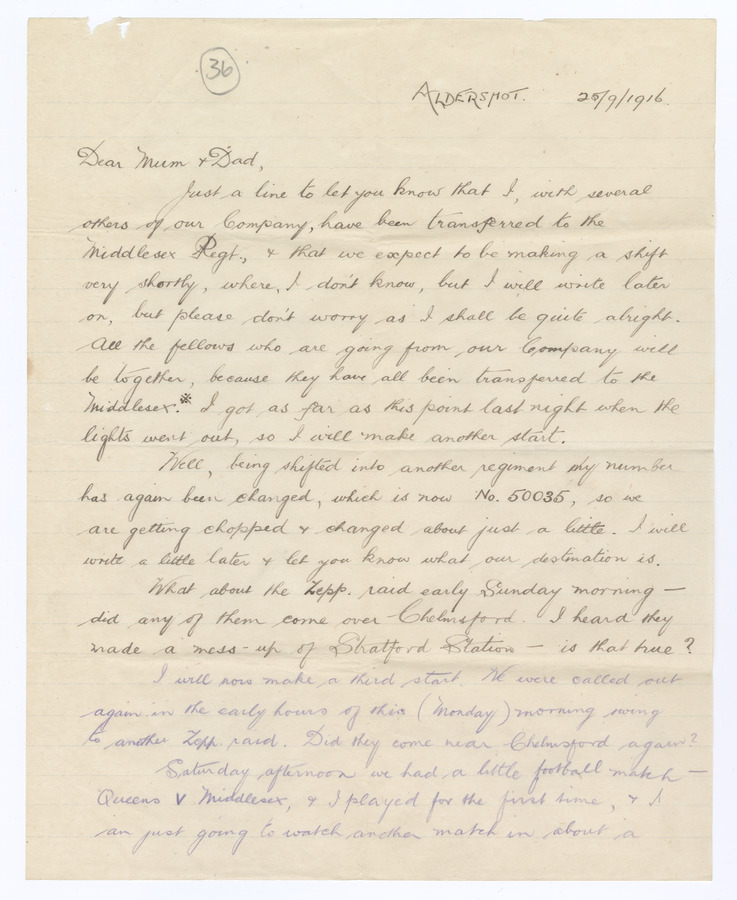 36
ALDERSHOT. 25/9/1916.
Dear Mum & Dad,
Just a line to let you know that I, with several
others of our Company, have been transferred to the
Middlesex Regt., & that we expect to be making a shift
very shortly, where, I don't know, but I will write later
on, but please don't worry as I shall be quite alright.
All the fellows who are going from our Company will
be together, because they have all been transferred to the
Middlesex.* I got as far as this point last night when the
lights went out, so I will make another start.
Well, being shifted into another regiment my number
has again been changed, which is now No. 50035, so we
are getting chopped & changed about just a little. I will
write a little later & let you know what our destination is.
What about the Zepp. raid early Sunday morning —
did any of them come over Chelmsford. I heard they
made a mess-up of Stratford Station — is that true?
I will now make a third start. We were called out
again in the early hours of this (Monday) morning owing
to another Zepp. raid. Did they come near Chelmsford again?
Saturday afternoon we had a little football match —
Queens V Middlesex, & I played for the first time, & I
am just going to watch another match in about a